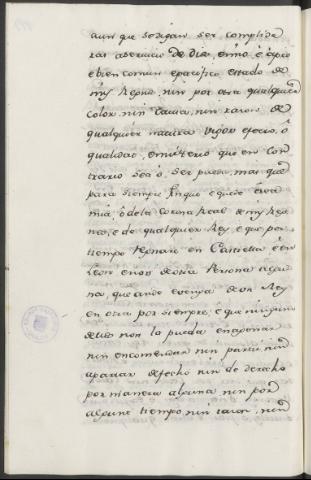 aun que se digan ser complide
ras a servicio de dios, e mio e a pro
e bien comun e pacifico estado de
mis Regnos, nin por otra qualquier
color, nin causa, nin razon de
qualquier natura vigor efecto, o
qualidad, e misterio que en con
trario sea o ser pueda, mas que
para siempre finque e quede en
mia, o de la Corona Real de mis Reg
nos, e de qualquier Rey, e que por
tiempo Regnare en Castiella e en
Leon e non de otra Persona algu
na, que ande e venga de un Rey
en otro por siempre, e que ninguno
dellos non la pueda enagenar
nin encomendar nin partir nin
apartar de fecho nin de derecho
por manera alguna nin por
algunt tiempo, nin razon, nin